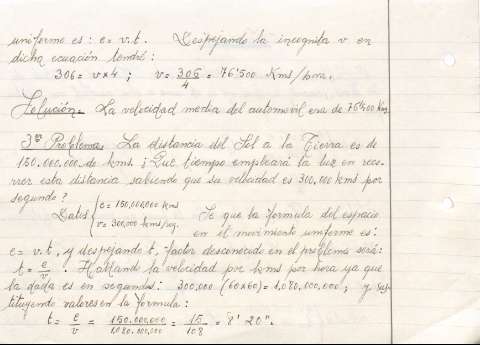 uniforme es: e = v.t. Despejando la incognita v en
dicha ecuación tendré:
306 = v x 4 ; v = 306/4 = 76'500 Kms/hora.
Solución.- La velocidad media del automovil era de 76'500 Kms.
3er Problema. La distancia del Sol a la Tierra es de
150.000.000 de kms. ¿Que tiempo empleará la luz en reco-
rrer esta distancia sabiendo que su velocidad es 300.000 kms por
segundo?
Datos { e = 150,000,000 kms
v = 300,000 kms/seg.
Se que la formula del espacio
en el movimiento uniforme es:
e = v.t, y despejando t, factor desconocido en el problema será:
t = e/v. Hallando la velocidad por kms por hora ya que
la dada es en segundos: 300,000 (60x60) = 1,080,000,000; y sus-
tituyendo valores en la formula:
t = e/v = 150.000.000/1.080.000,000 = 15/108 = 8' 20".